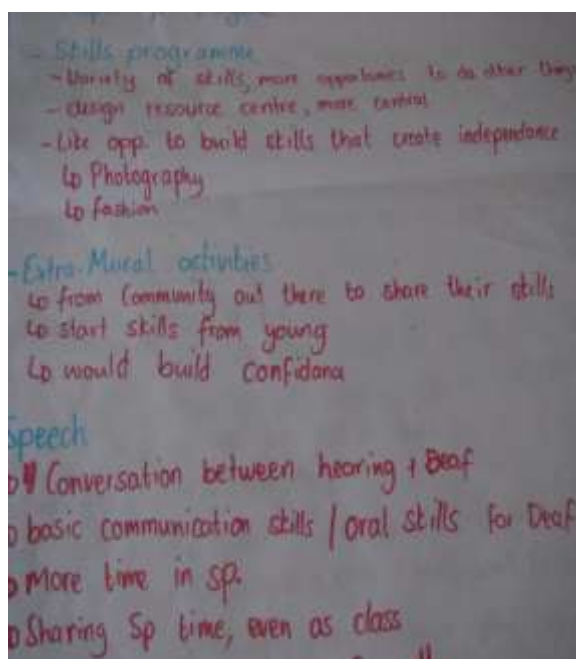 - Skills programme
- Variety of skills, more opportunies to do other things
- design resource centre, more central
- Like opp. to build skills that create independance
↳ Photography
↳ fashion
- Extra-Mural activities
↳ from Community out there to share their skills
↳ start skills from young
↳ would build confidana
Speech
↳ Conversation between hearing + Deaf
↳ basic communication skills / oral skills for Deaf
↳ More time in sp.
↳ Sharing Sp time, even as class